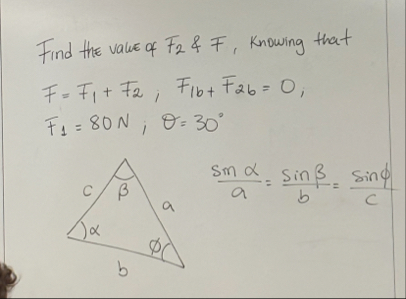 Find the value of F2 & F, Knowing that
F = F1 + F2 ; F1b + F2b = 0,
F1 = 80 N ; θ = 30°
sin α / a = sin β / b = sin ϕ / c
c
β
a
α
ϕ
b